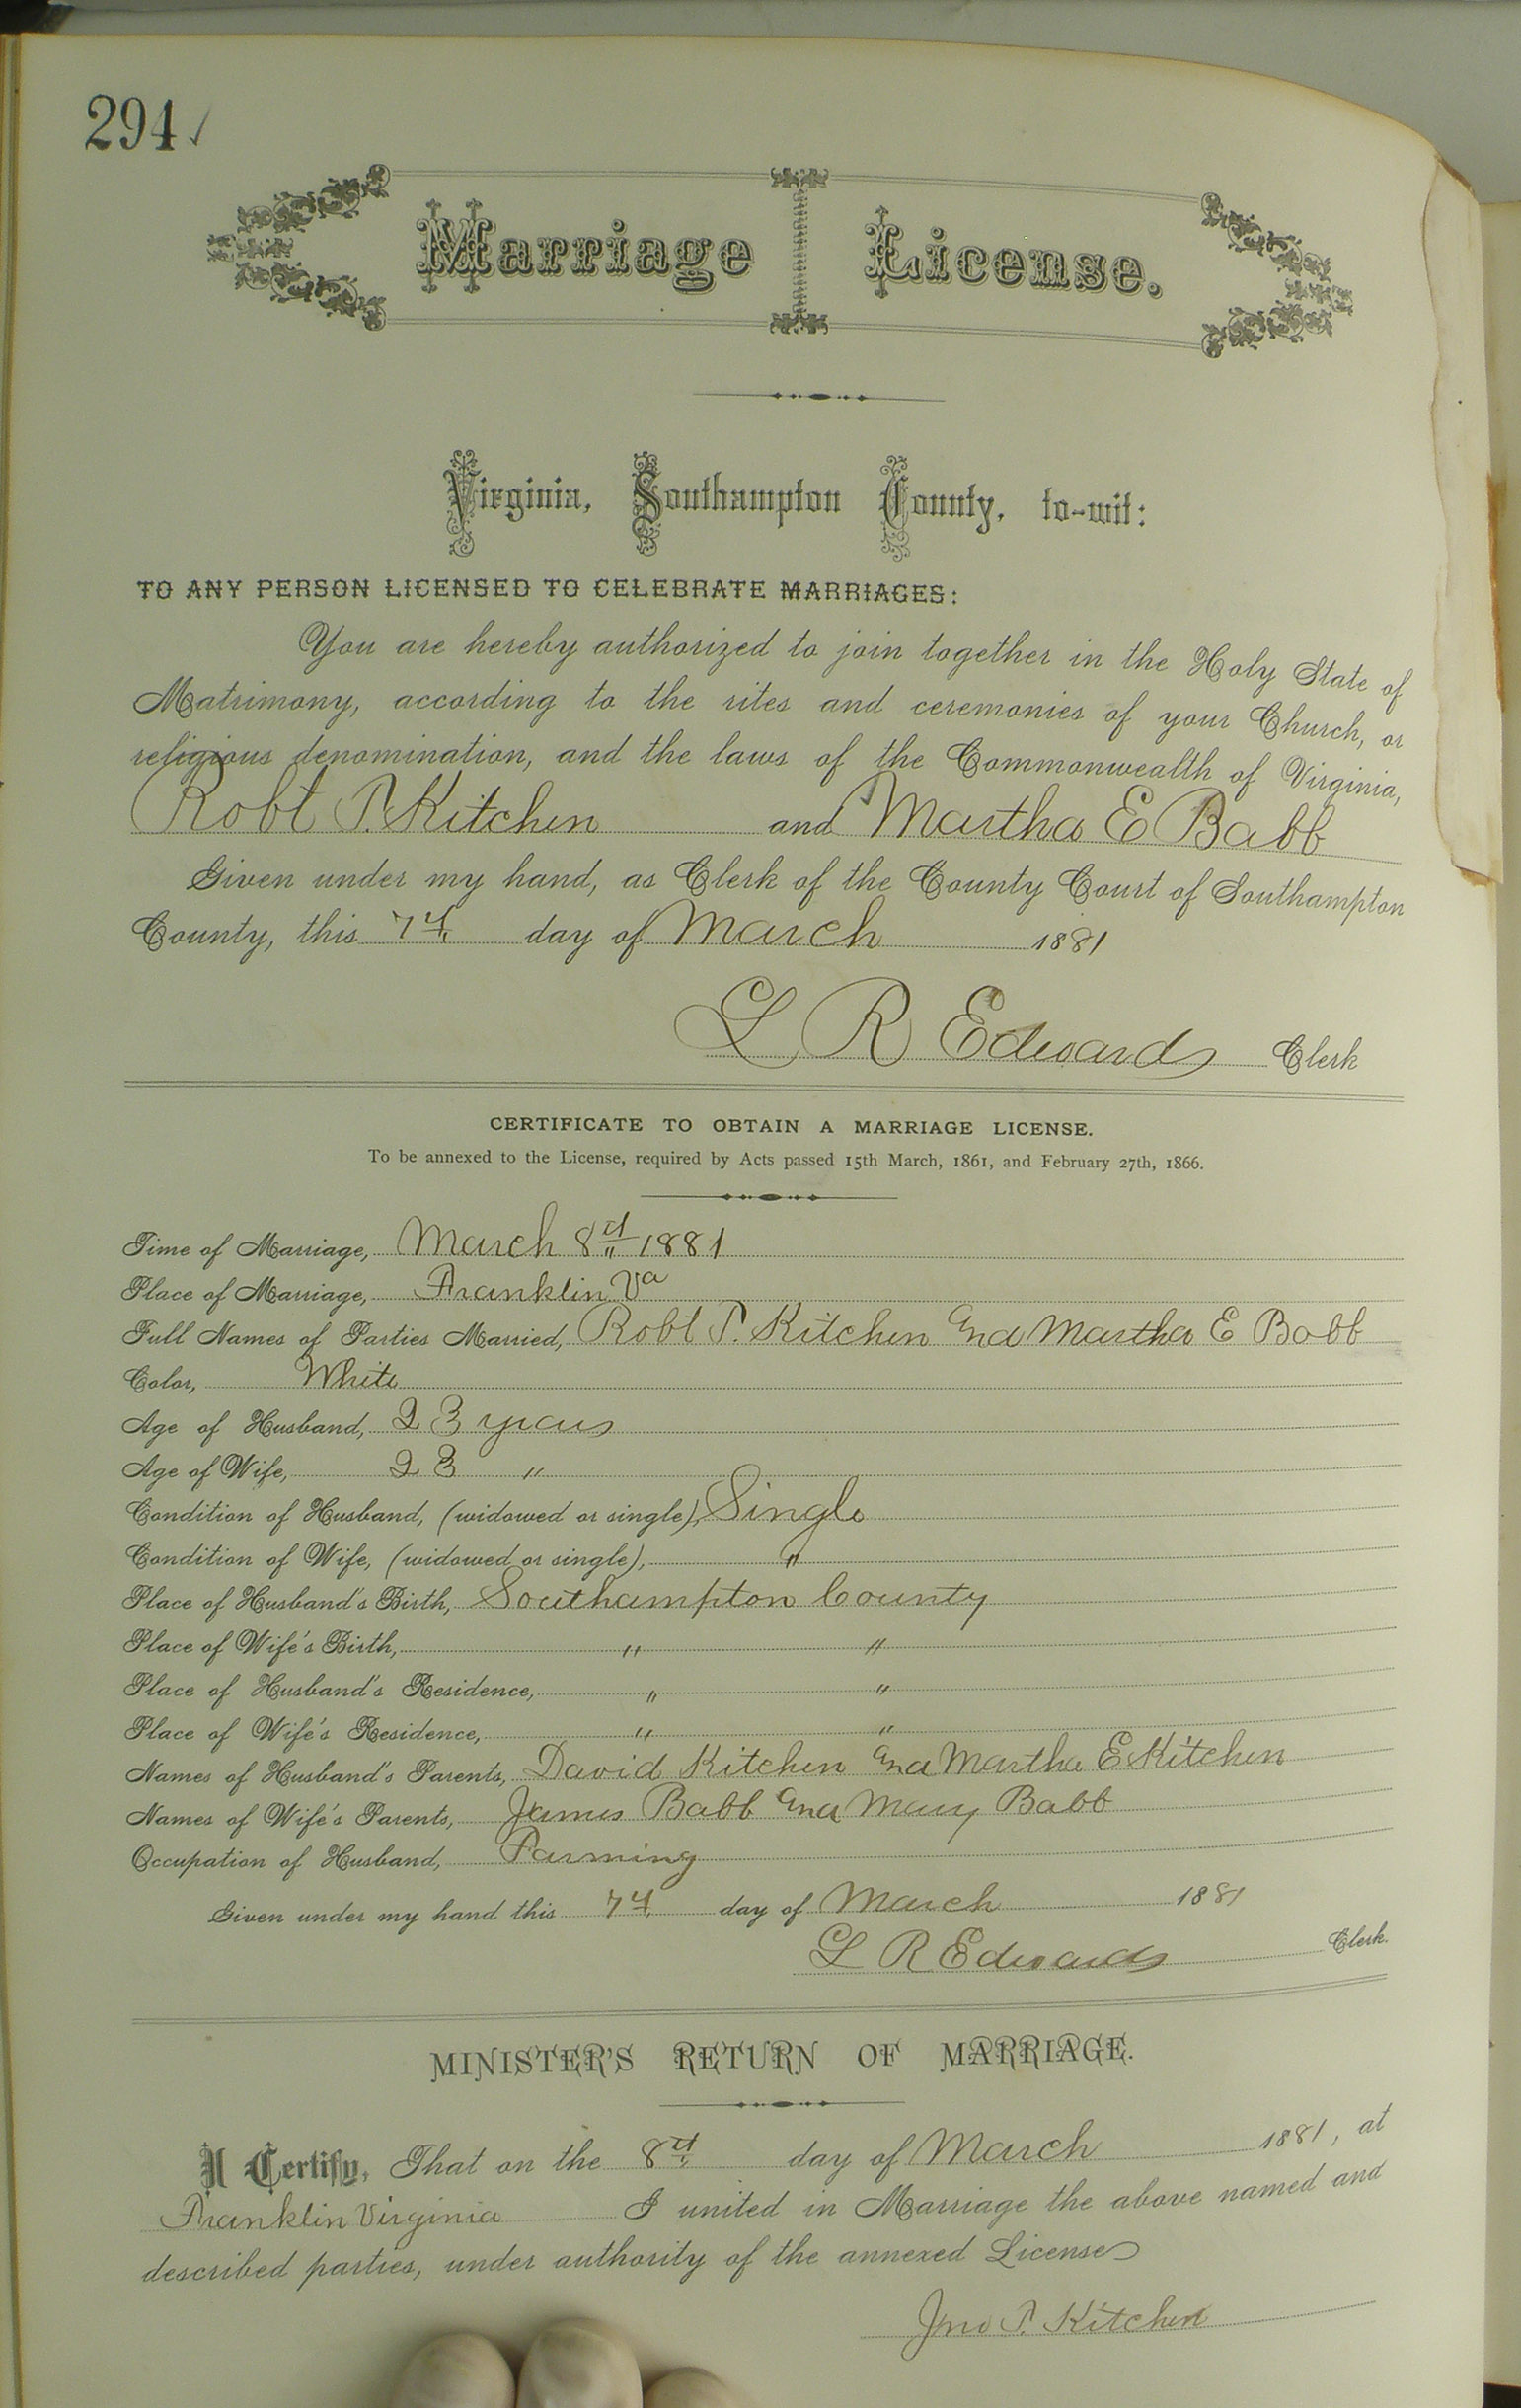 294 ✓
Marriage License.
Virginia, Southampton County, to-wit:
TO ANY PERSON LICENSED TO CELEBRATE MARRIAGES:
You are hereby authorized to join together in the Holy State of
Matrimony, according to the rites and ceremonies of your Church, or
religious denomination, and the laws of the Commonwealth of Virginia,
Robt P. Kitchen and Martha E Babb
Given under my hand, as Clerk of the County Court of Southampton
County, this 7th day of March 1881
L R Edwards Clerk
CERTIFICATE TO OBTAIN A MARRIAGE LICENSE.
To be annexed to the License, required by Acts passed 15th March, 1861, and February 27th, 1866.
Time of Marriage, March 8th 1881
Place of Marriage, Franklin Va
Full Names of Parties Married, Robt P. Kitchen and Martha E Babb
Color, White
Age of Husband, 23 years
Age of Wife, 23 "
Condition of Husband, (widowed or single), Single
Condition of Wife, (widowed or single), "
Place of Husband's Birth, Southampton County
Place of Wife's Birth, " "
Place of Husband's Residence, " "
Place of Wife's Residence, " "
Names of Husband's Parents, David Kitchen and Martha E Kitchen
Names of Wife's Parents, James Babb and Mary Babb
Occupation of Husband, Farming
Given under my hand this 7th day of March 1881
L R Edwards Clerk.
MINISTER'S RETURN OF MARRIAGE.
I Certify, That on the 8th day of March 1881, at
Franklin Virginia I united in Marriage the above named and
described parties, under authority of the annexed License
Jno P. Kitchen